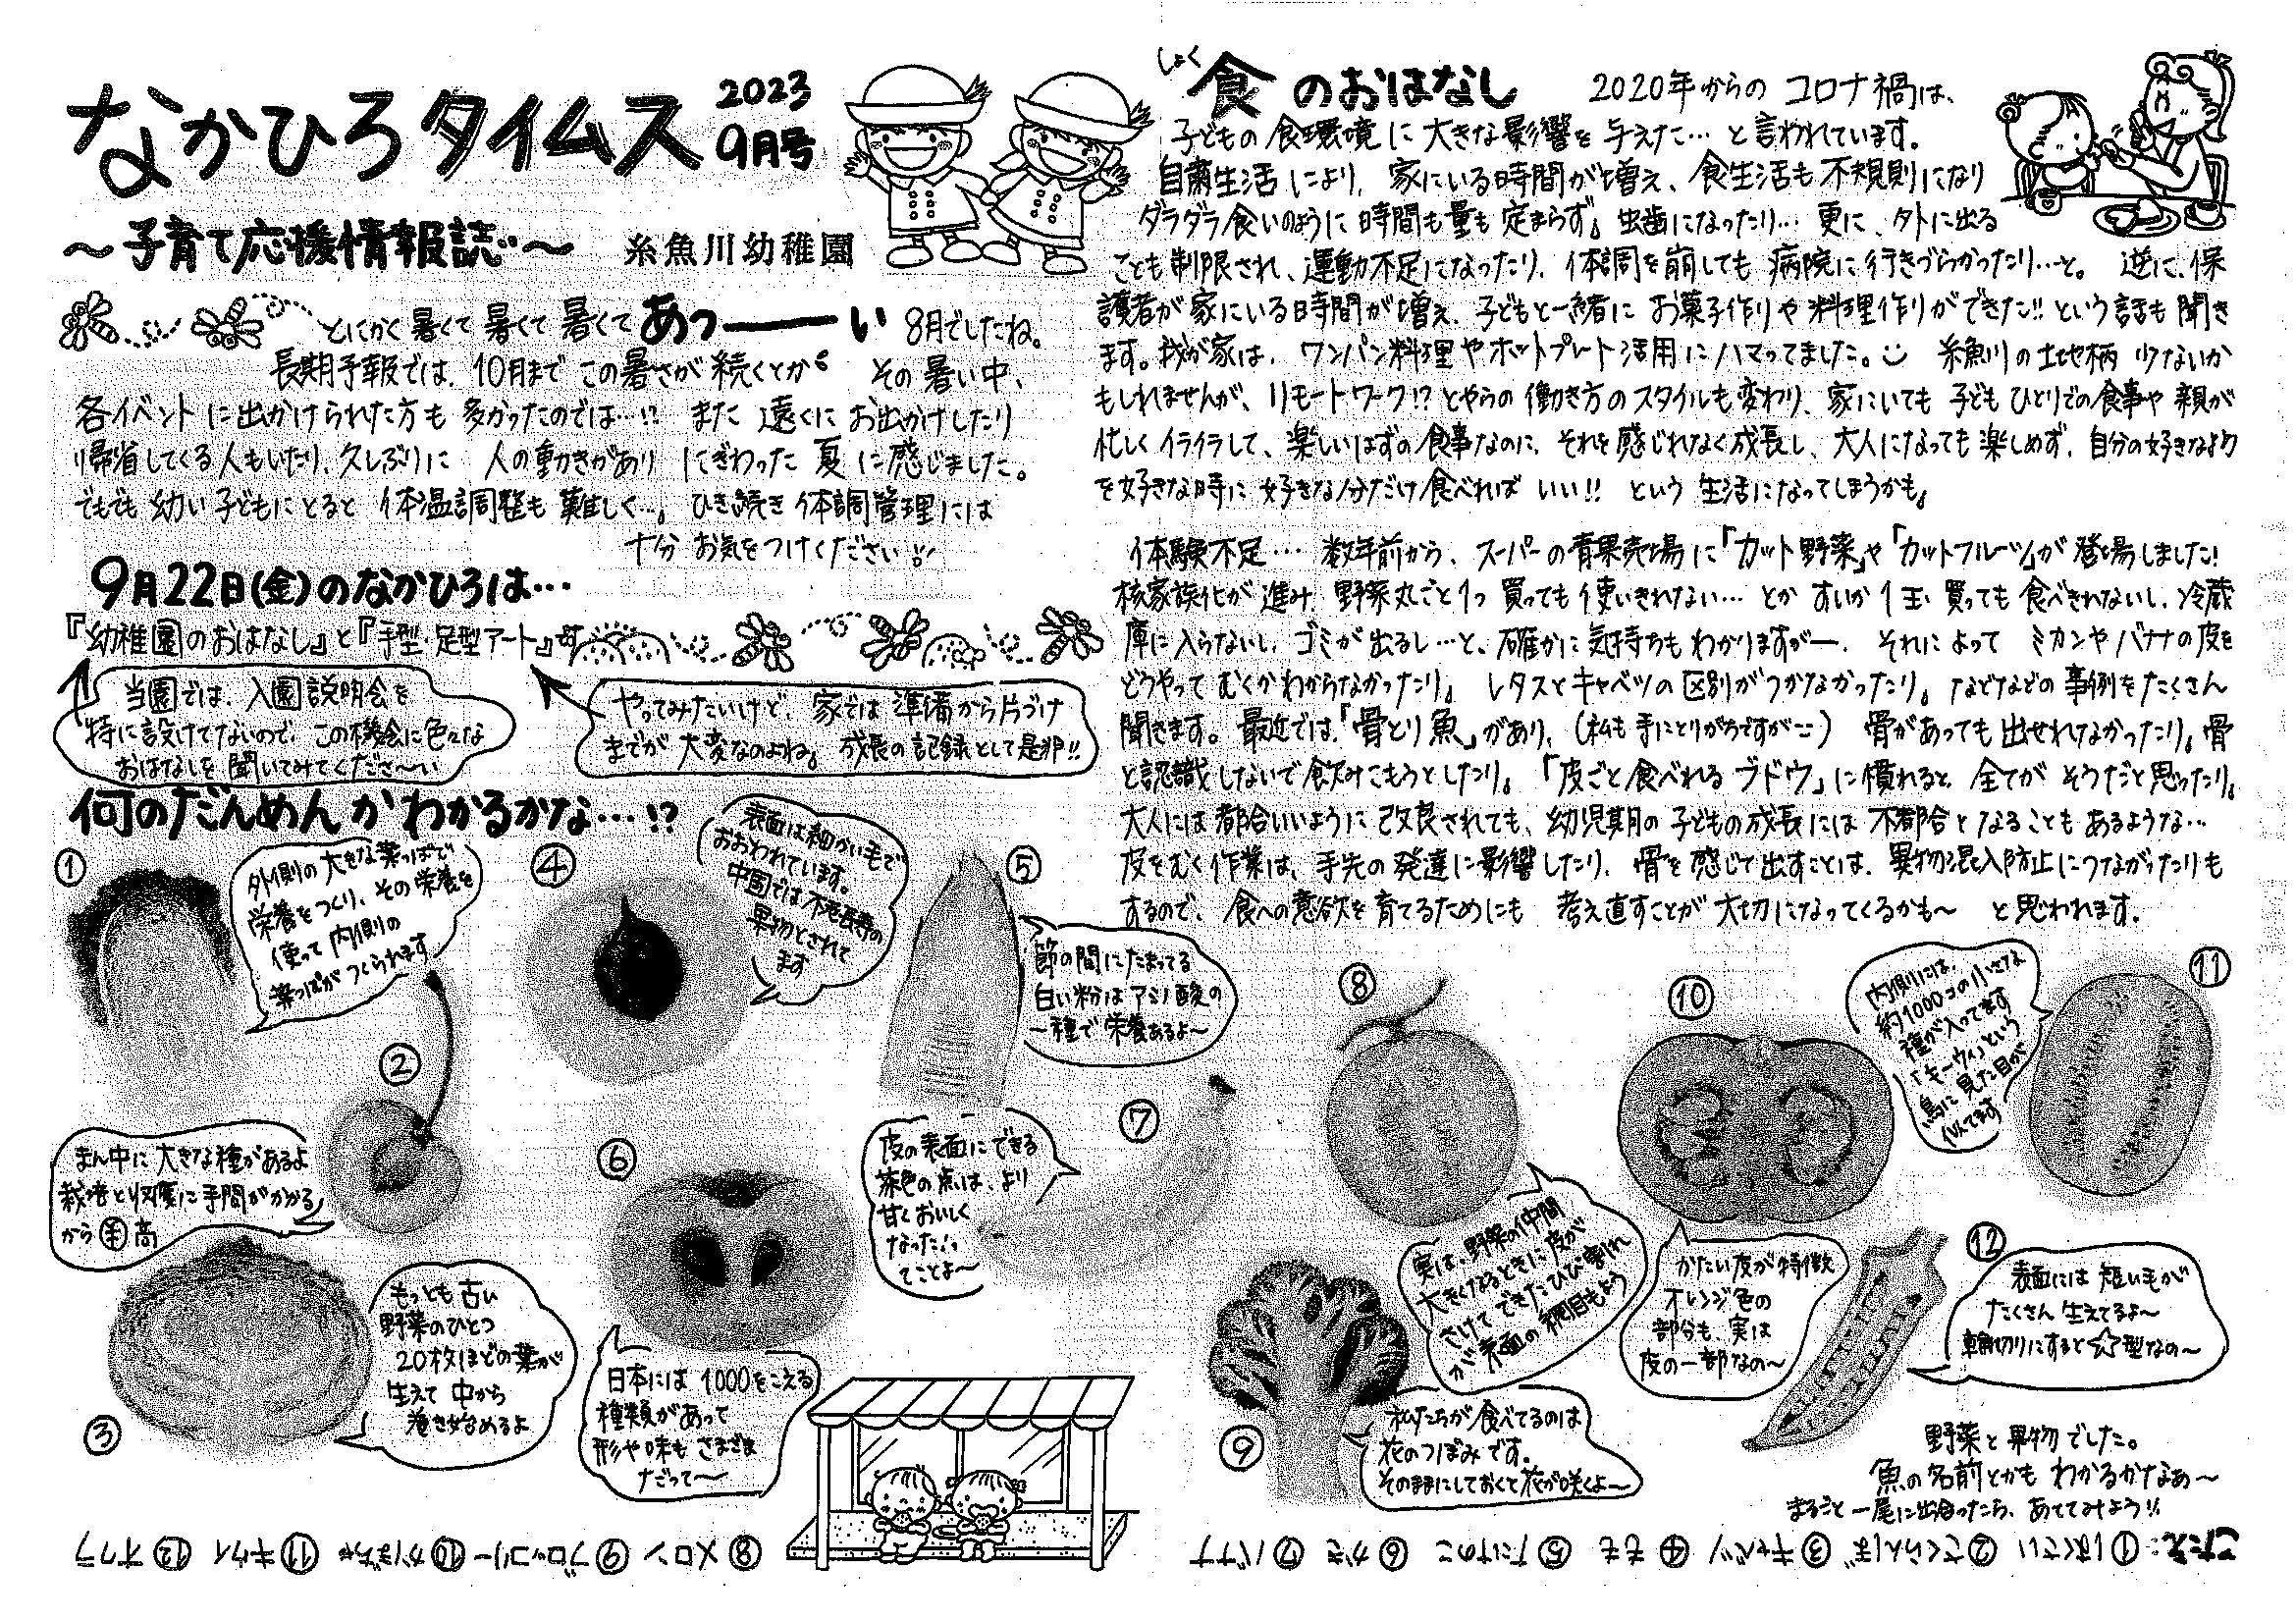 なかひろタイムス
2023
9月号
～子育て応援情報誌～
糸魚川幼稚園
とにかく暑くて暑くて暑くてあっーーい 8月でしたね。
長期予報では、10月までこの暑さが続くとか。 その暑い中、
各イベントに出かけられた方も多かったのでは…!? また遠くにお出かけしたり
帰省してくる人もいたり、久しぶりに 人の動きがあり にぎわった夏に感じました。
でもでも幼い子どもにとると 体温調整も難しく…。 ひき続き体調管理には
十分お気をつけください!!
9月22日(金)のなかひろは…
『幼稚園のおはなし』と『手型・足型アート』です
当園では、入園説明会を
特に設けてないので、この機会に色々な
おはなしを聞いてみてくださ～い
やってみたいけど、家では準備から片づけ
までが大変なのよね。 成長の記録として是非!!
何のだんめんかわかるかな…!?
①
外側の大きな葉っぱで
栄養をつくり、その栄養を
使って内側の
葉っぱがつくられます
②
まん中に大きな種があるよ
栽培と収穫に手間がかかる
から㊍高
③
もっとも古い
野菜のひとつ
20枚ほどの葉が
生えて中から
巻き始めるよ
④
表面は細かい毛で
おおわれています。
中国では不老長寿の
果物とされて
ます
⑤
節の間にたまってる
白い粉はアミノ酸の
一種で栄養あるよ～
⑥
日本には1000をこえる
種類があって
形や味もさまざま
だって～
⑦
皮の表面にできる
茶色の点は、より
甘くおいしく
なったよっ
てことよ～
しょく
食のおはなし
2020年からのコロナ禍は、
子どもの食環境に大きな影響を与えた…と言われています。
自粛生活により、家にいる時間が増え、食生活も不規則になり
ダラダラ食いのように時間も量も定まらず。虫歯になったり… 更に、外に出る
ことも制限され、運動不足になったり、体調を崩しても病院に行きづらかったり…と。 逆に、保
護者が家にいる時間が増え、子どもと一緒にお菓子作りや料理作りができた!!という話も聞き
ます。我が家は、ワンパン料理やホットプレート活用にハマってました。 糸魚川の土地柄少ないか
もしれませんが、リモートワーク!?とやらの働き方のスタイルも変わり、家にいても子どもひとりでの食事や親が
忙しくイライラして、楽しいはずの食事なのに、それを感じれなく成長し、大人になっても楽しめず、自分の好きなもの
を好きな時に好きな分だけ食べればいい!! という生活になってしまうかも。
体験不足… 数年前から、スーパーの青果売場に「カット野菜」や「カットフルーツ」が登場しました!
核家族化が進み、野菜丸ごと1つ買っても使いきれない…とか すいか1玉買っても食べきれないし、冷蔵
庫に入らないし、ゴミが出るし…と、確かに気持ちもわかりますがー、それによって ミカンやバナナの皮を
どうやってむくかわからなかったり。 レタスとキャベツの区別がつかなかったり。などなどの事例をたくさん
聞きます。最近では、「骨とり魚」があり、(私も手にとりがちですが--) 骨があっても出せれなかったり。骨
と認識しないで飲みこもうとしたり。「皮ごと食べれるブドウ」に慣れると、全てがそうだと思ったり。
大人には都合いいように改良されても、幼児期の子どもの成長には不都合となることもあるような…
皮をむく作業は、手先の発達に影響したり、骨を感じて出すことは、異物混入防止につながったりも
するので、食への意欲を育てるためにも 考え直すことが大切になってくるかも～ と思われます。
⑧
実は、野菜の仲間
大きくなるときに皮が
さけてできたひび割れ
が表面の網目もよう
⑨
私たちが食べてるのは
花のつぼみです。
そのままにしておくと花が咲くよ～
⑩
かたい皮が特徴
オレンジ色の
部分も、実は
皮の一部なの～
⑪
内側には、
約1000コの小さな
種が入ってます
「キーウィ」という
鳥に見た目が
似てます
⑫
表面には短い毛が
たくさん生えてるよ～
輪切りにすると☆型なの～
野菜と果物でした。
魚の名前とかもわかるかなぁ～
まるごと一尾に出会ったら、あててみよう!!
こたえ：①はくさい ②さくらんぼ ③キャベツ ④もも ⑤たけのこ ⑥かき ⑦バナナ
⑧メロン ⑨ブロッコリー ⑩かぼちゃ ⑪キウイ ⑫オクラ